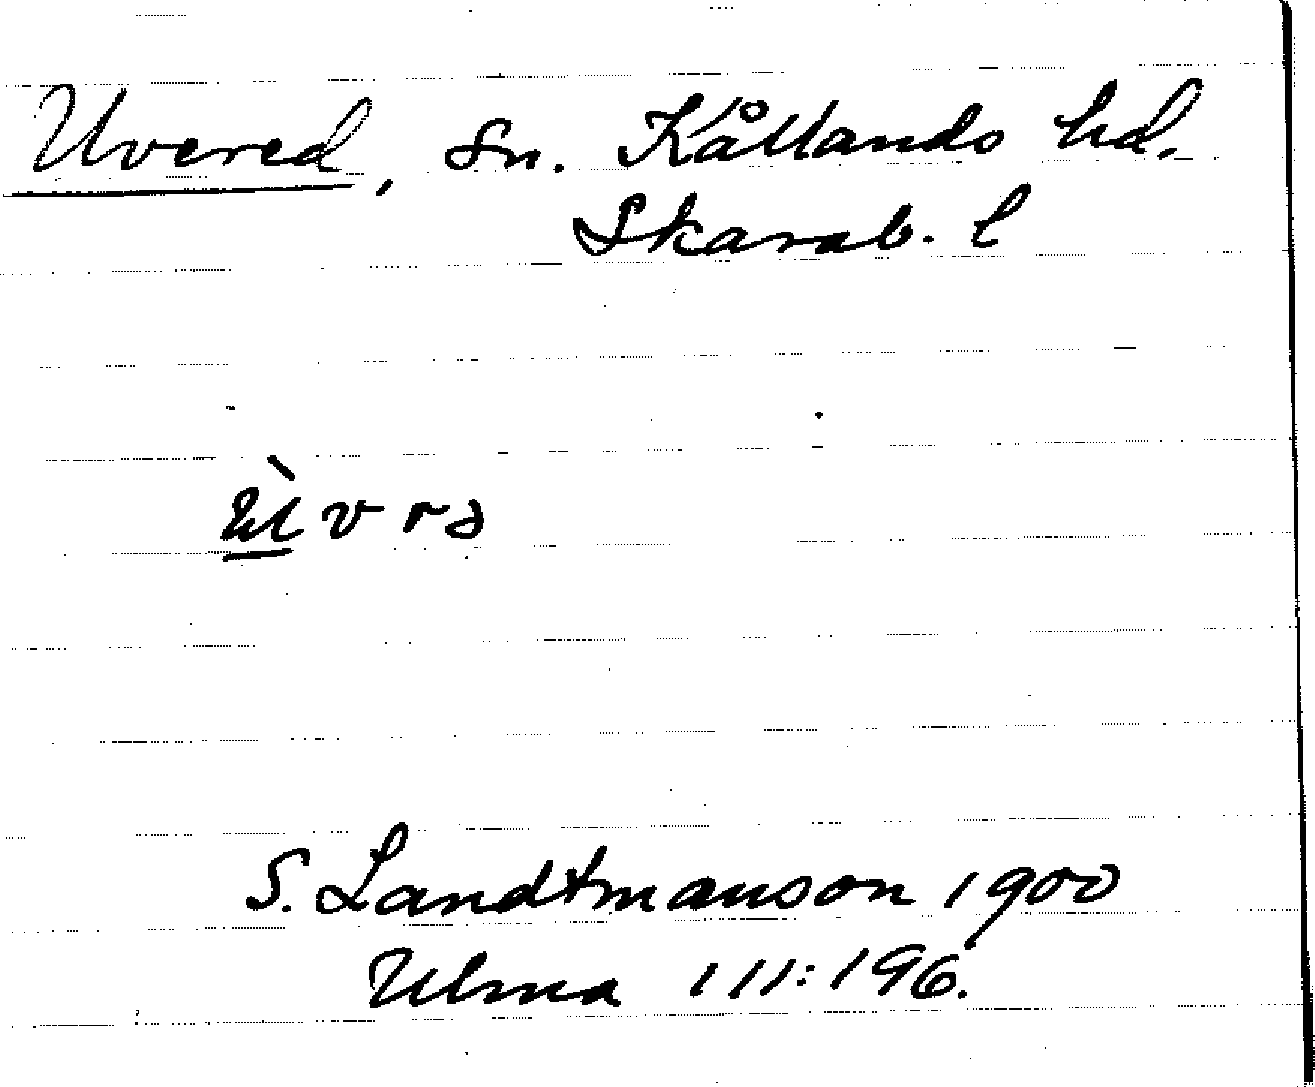 Uvered, Sn. Kållands hd.
Skarab. l
ùvrə
S. Landtmanson 1900
Ulma 111:196.